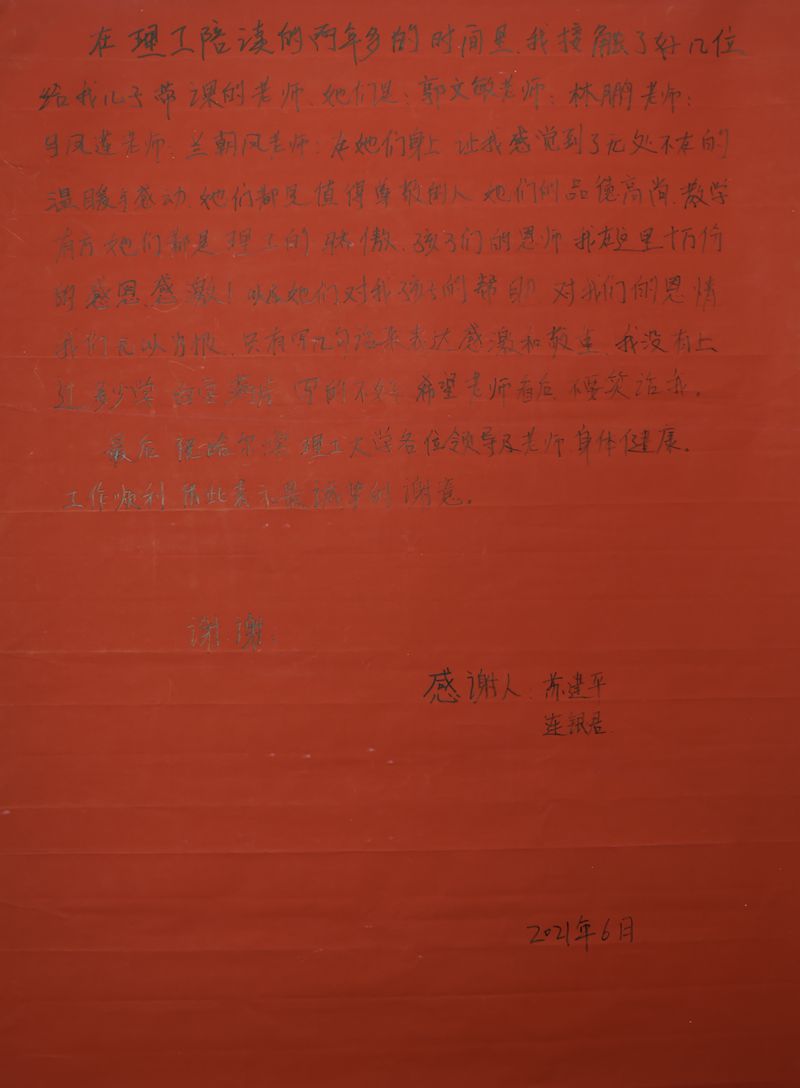 在理工陪读的两年多的时间里.我接触了好几位
给我儿子带课的老师.她们是:郭文敏老师:林鹏老师:
牛凤莲老师:兰朝凤老师:在她们身上 让我感觉到了无处不在的
温暖与感动.她们都是值得尊敬的人 她们的品德高尚.教学
有方 她们都是理工的骄傲.孩子们的恩师 我在这里十万份
的感恩感激!以及她们对我孩子的帮助 对我们的恩情
我们无以为报.只有写几句话来表达感激和敬意.我没有上
过多少学 写的不好 希望老师看后 不要笑话我.
最后 祝哈尔滨理工大学各位领导及老师.身体健康.
工作顺利 在此表示最诚挚的谢意.
谢谢:
感谢人:苏建平
连银君
2021年6月